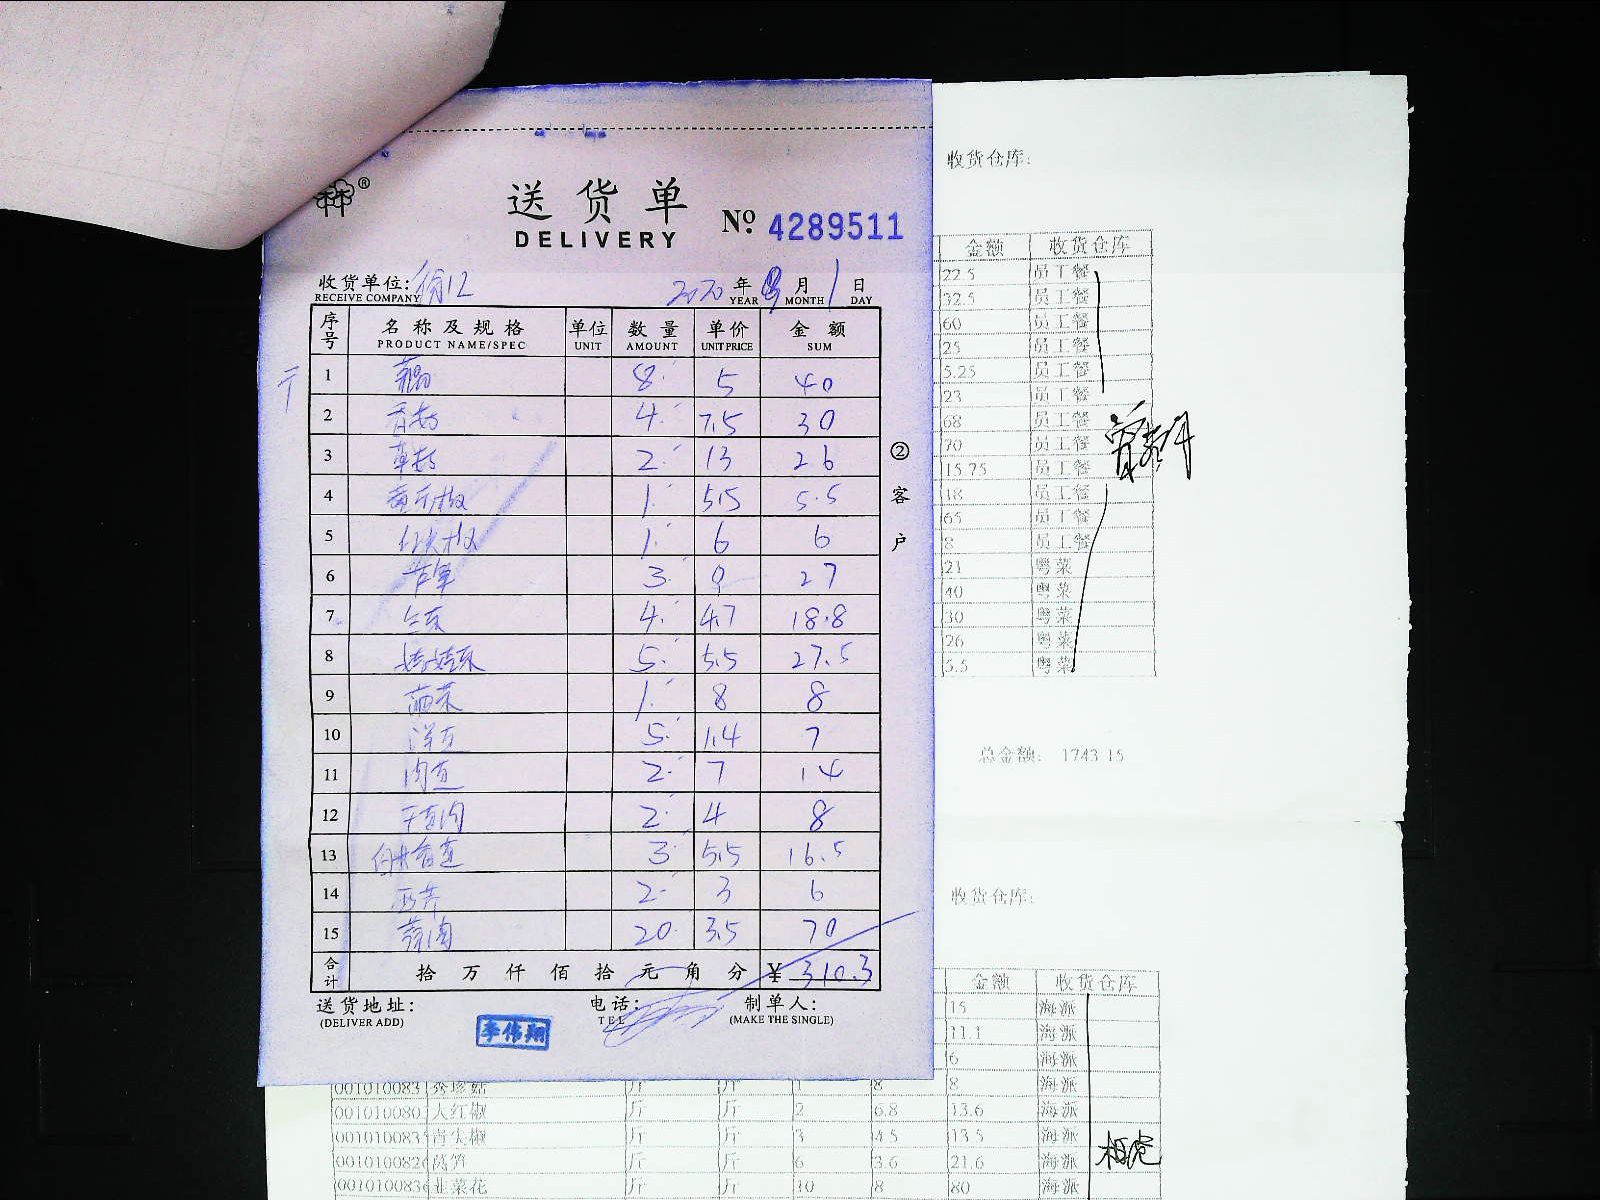 ®
送货单
DELIVERY
№ 4289511
收货单位:
RECEIVE COMPANY
2020 年 月 1 日
YEAR MONTH DAY
序号 名称及规格 单位 数量 单价 金额
PRODUCT NAME/SPEC UNIT AMOUNT UNIT PRICE SUM
1 8 5 40
2 香菇 4 7.5 30
3 草菇 2 13 26
4 1 5.5 5.5
5 1 6 6
6 3 9 27
7 4 4.7 18.8
8 娃娃菜 5 5.5 27.5
9 1 8 8
10 5 1.4 7
11 2 7 14
12 2 4 8
13 3 5.5 16.5
14 西芹 2 3 6
15 20 3.5 70
合计 拾 万 仟 佰 拾 元 角 分 ¥ 310.3
②客户
送货地址: 电话: 制单人:
(DELIVER ADD) TEL (MAKE THE SINGLE)
李伟翔
收货仓库:
金额 收货仓库
22.5 员工餐
32.5 员工餐
60 员工餐
25 员工餐
5.25 员工餐
23 员工餐
68 员工餐
70 员工餐
15.75 员工餐
18 员工餐
65 员工餐
8 员工餐
21 粤菜
40 粤菜
30 粤菜
26 粤菜
5.5 粤菜
总金额: 1743.15
收货仓库:
金额 收货仓库
15 海派
11.1 海派
6 海派
001010083 秀珍菇 斤 斤 1 8 8 海派
001010080 大红椒 斤 斤 2 6.8 13.6 海派
001010083 青尖椒 斤 斤 3 4.5 13.5 海派
001010082 莴笋 斤 斤 6 3.6 21.6 海派
001010083 韭菜花 斤 斤 10 8 80 海派